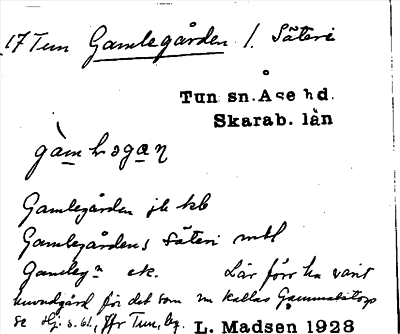 17 Tun Gamlegården 1. Säteri
Tun sn. Åse hd.
Skarab. län
Gamlegården jb kb
Gamlegårdens Säteri mtl
Gamlegn ek. Lär förr ha varit
huvudgård för det som nu kallas
se s. 61, Tun, L. Madsen 1928